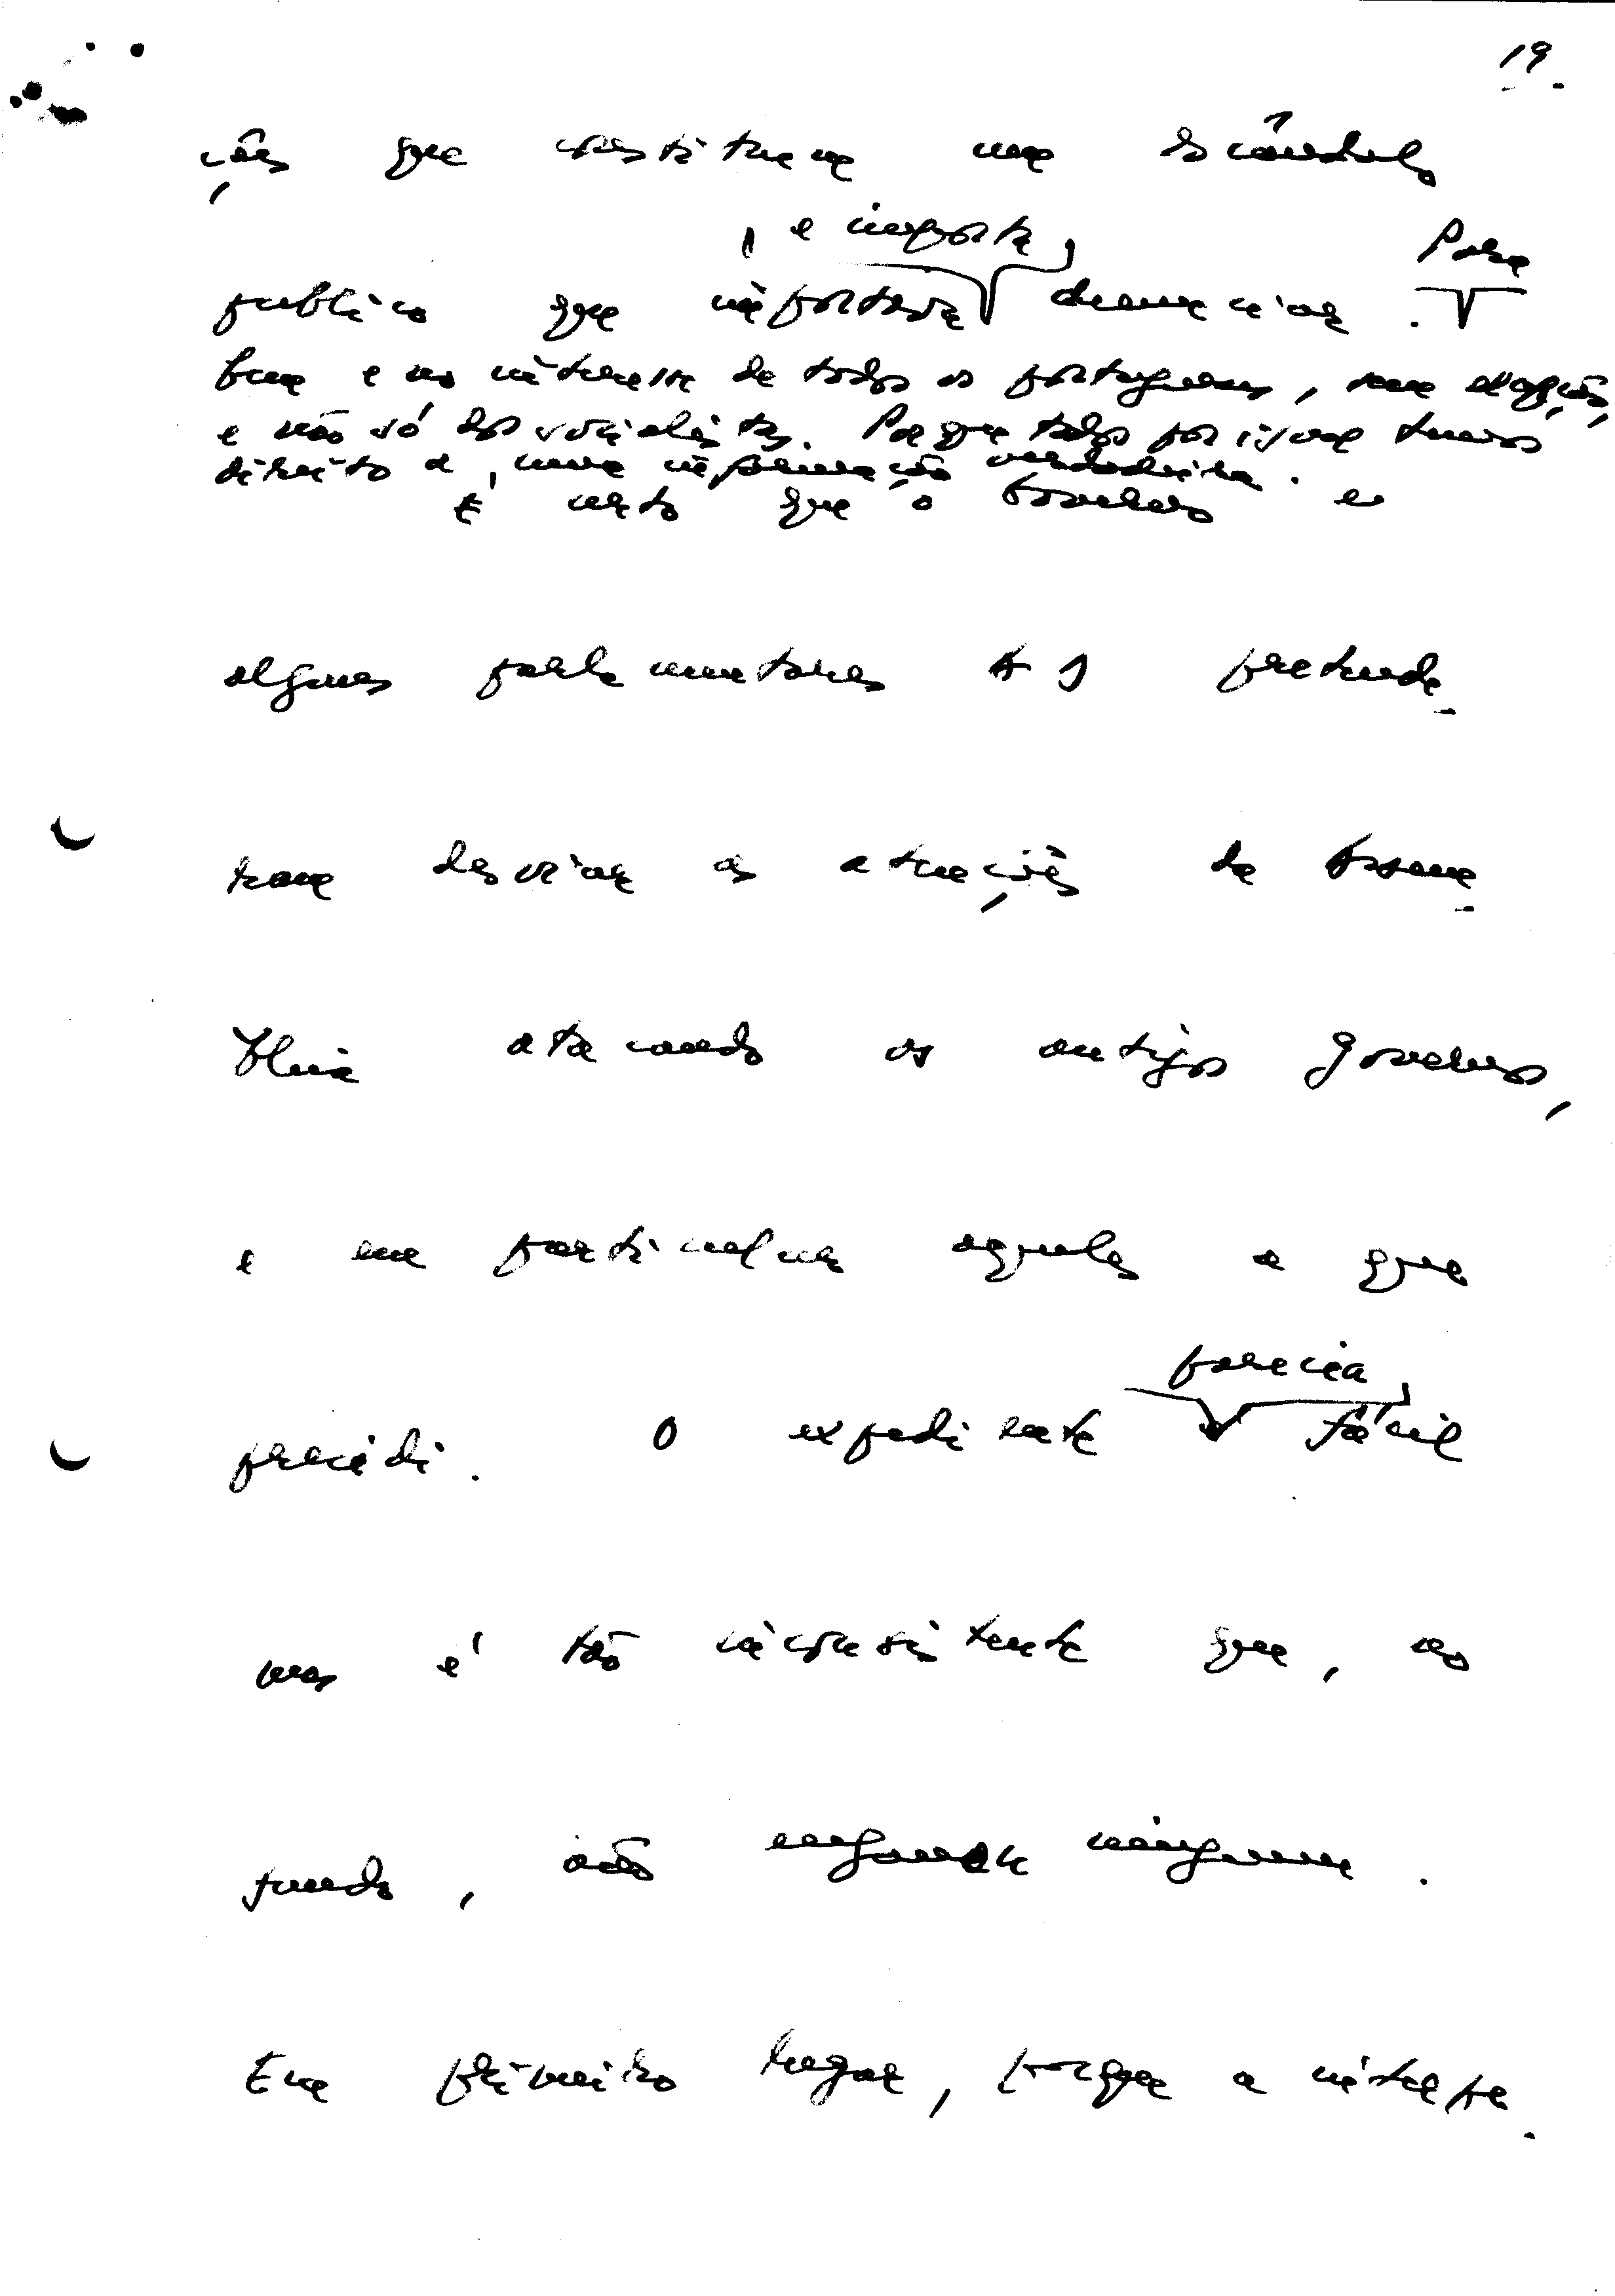 19.
ções que constituem um escândalo
, e importa,
Para
público que importava denunciar.
bem e no interesse de todos os portugueses, sem excepção,
e não só dos socialistas. Porque todos por igual temos
direito a uma informação verdadeira.
É certo que o Governo e
alguns parlamentares AD pretende-
ram desviar as atenções da assem-
bleia atacando os antigos governos,
e em particular aqueles a que
parecia,
presidi. O expediente fácil
mas é tão inconsistente que, no
fundo, não engana ninguém.
Em primeiro lugar, porque a interpe-